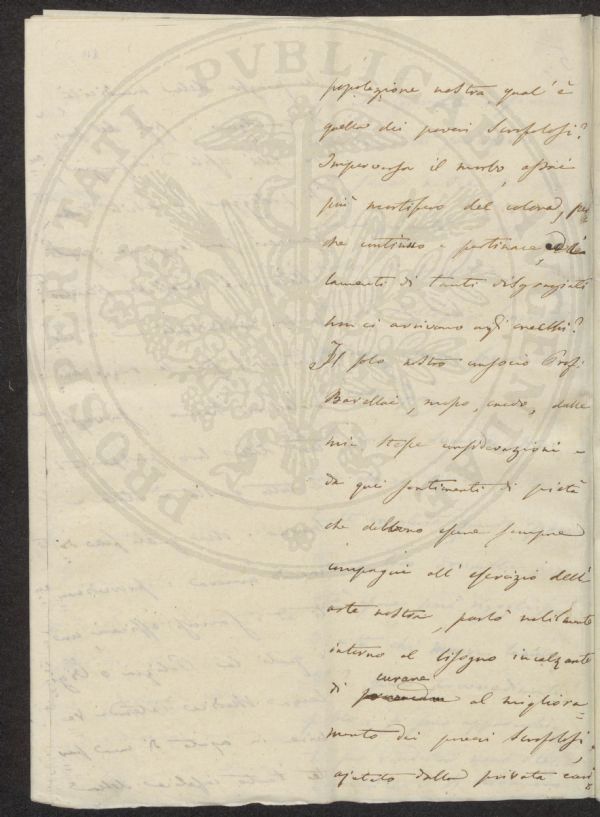 PROSPERITATI PVBLICAE AVGENDAE
popolazione nostra qual' è
quella dei poveri Scrofolosi?
Imperversa il morbo, assai
più mortifero del colera, per
che continuo e pertinace, ed i
lamenti di tanti disgraziati
non ci arrivano agli orecchi?
Il solo nostro consocio Prof.
Barellai, mosso, credo, dalle
mie stesse considerazioni e
da quei sentimenti di pietà
che debbono essere sempre
compagni all' esercizio dell'
arte nostra, parlò nobilmente
intorno al bisogno incalzante
di curare al migliora=
mento dei poveri Scrofolosi,
ajutato dalla privata cari